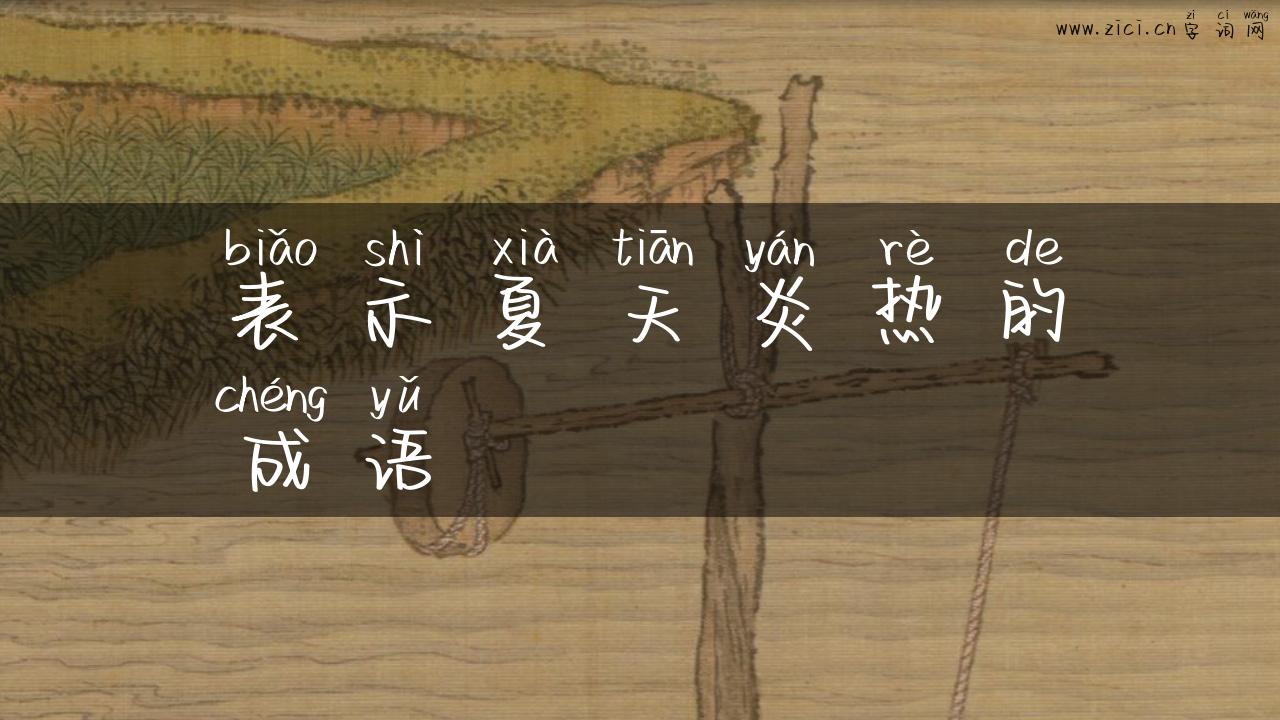 zì cí wǎng
www.zici.cn 字词网
biǎo shì xià tiān yán rè de
表示夏天炎热的
chéng yǔ
成语